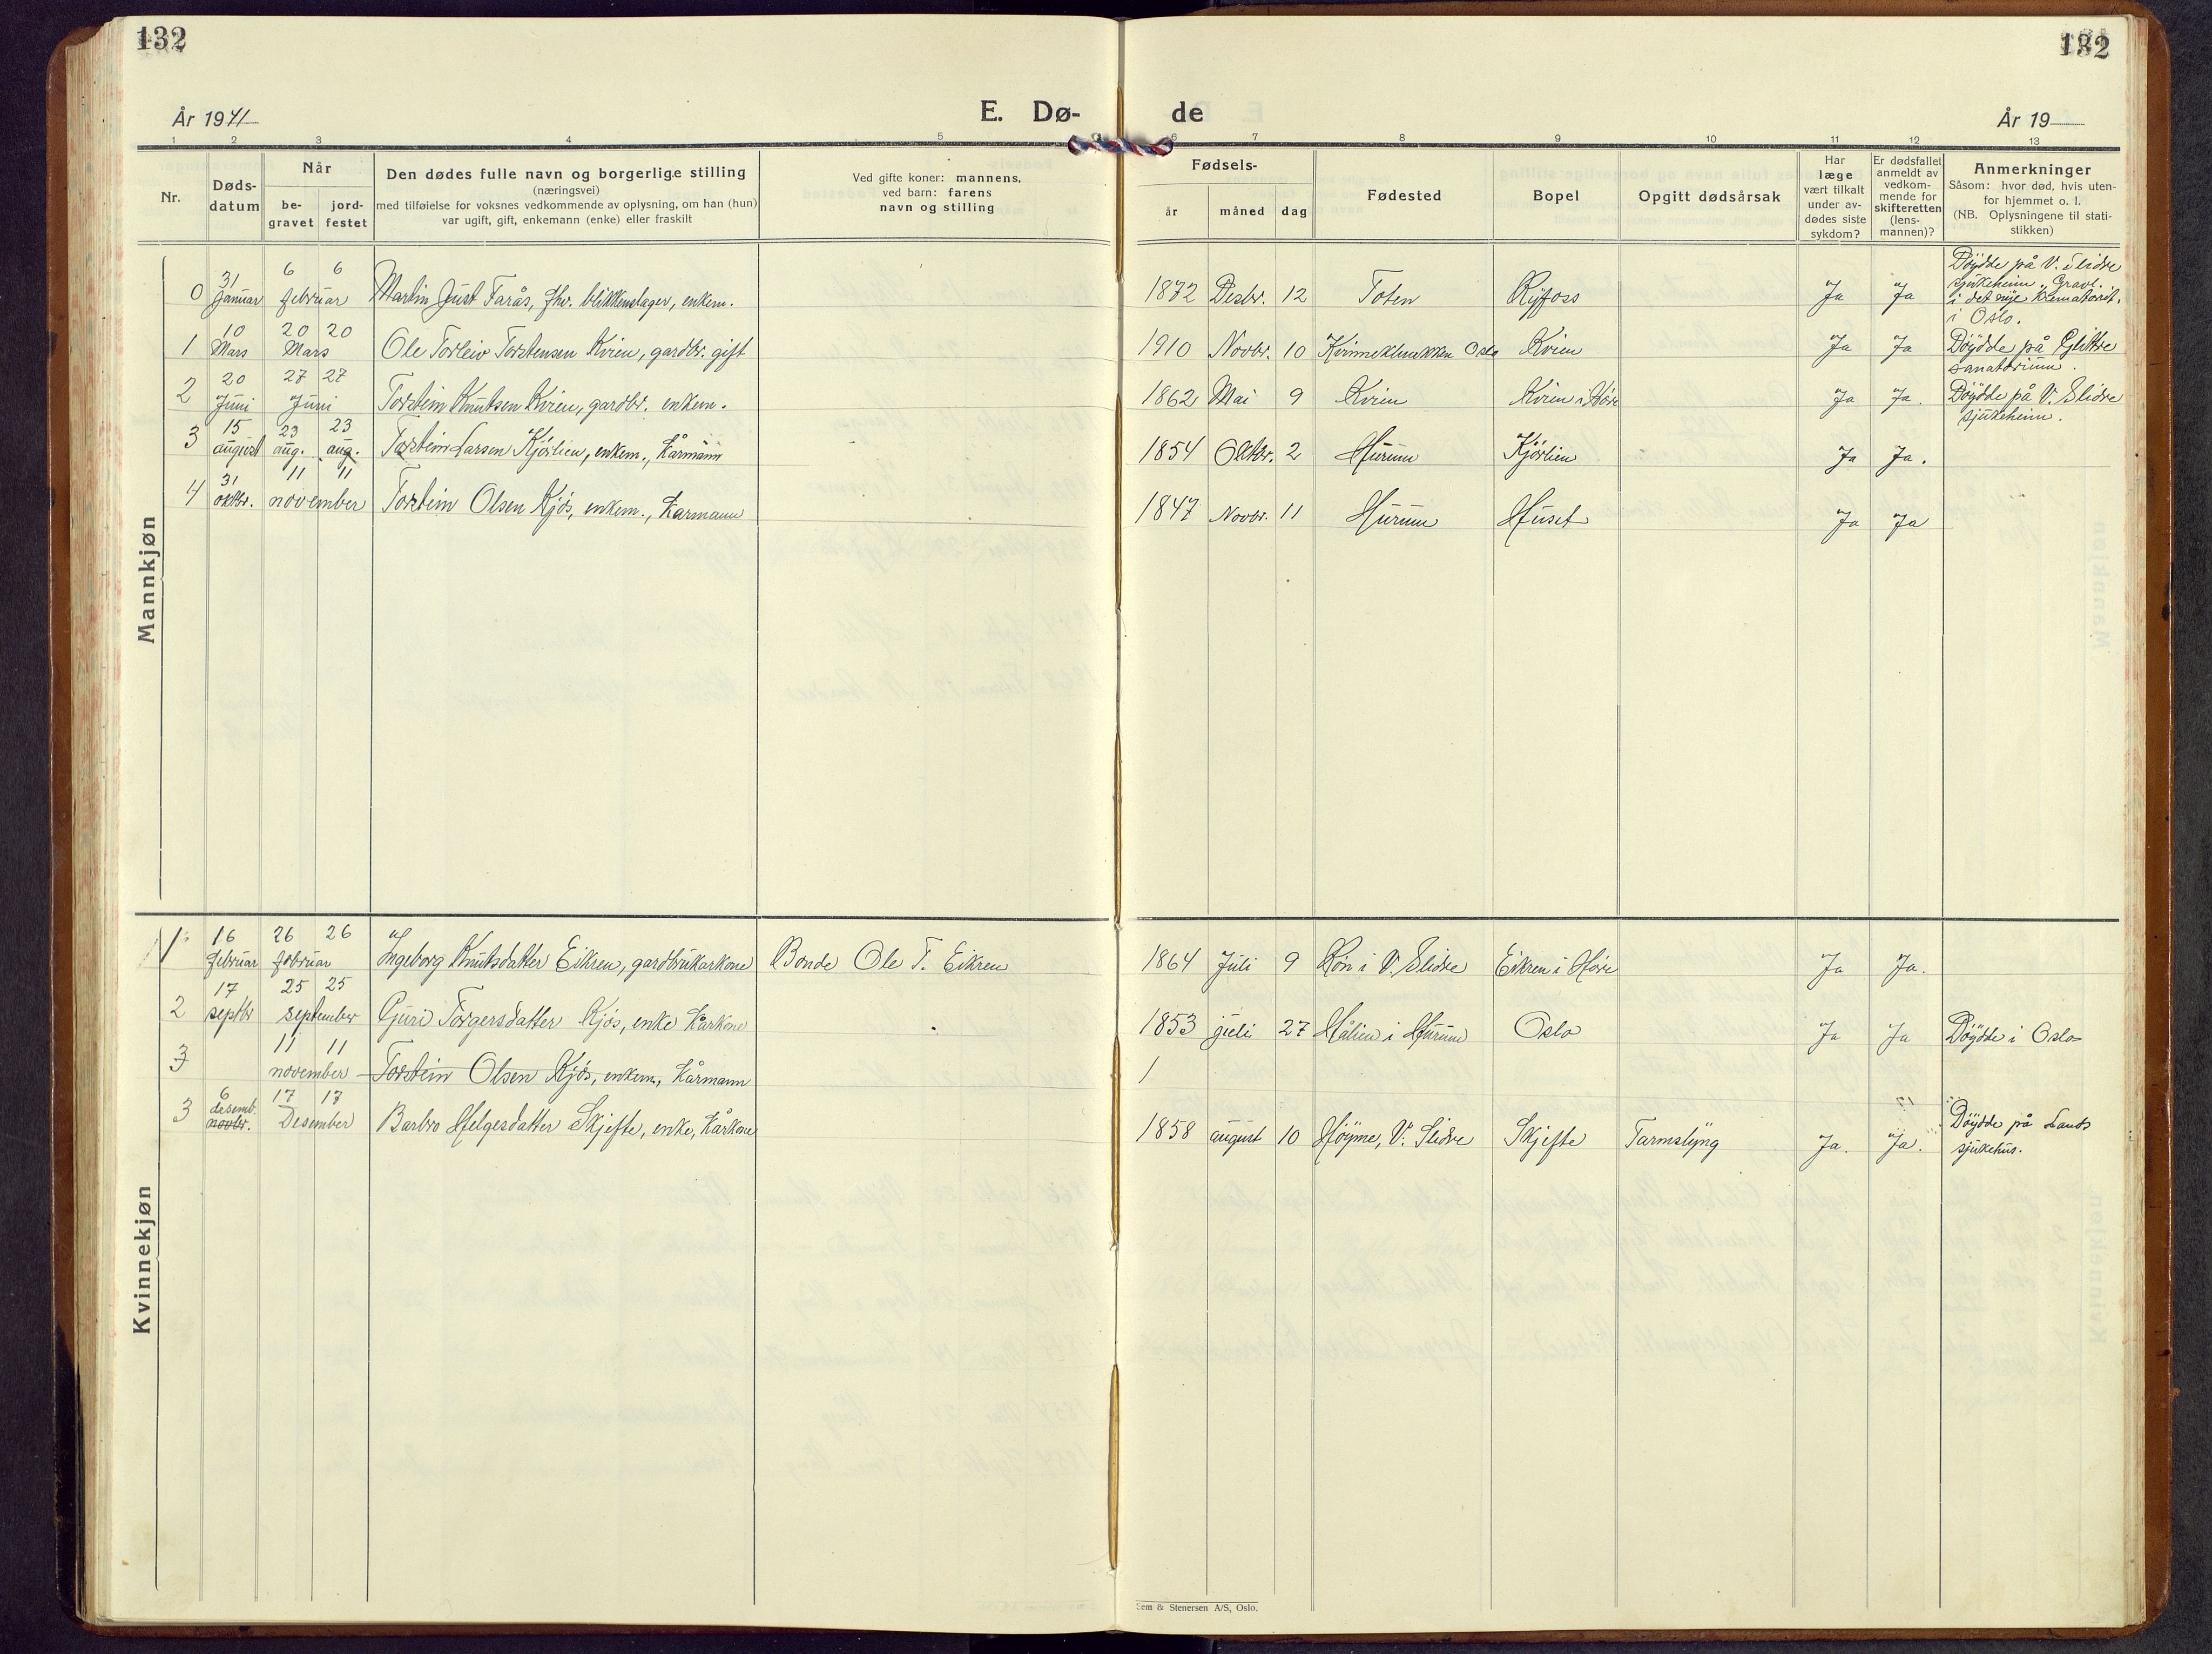 132
132
År 1941
E. Dø-
de
År 19
1 2 3 4 5 6 7 8 9 10 11 12 13
Nr.
Døds-
datum
Når
be-
gravet
jord-
festet
Den dødes fulle navn og borgerlige stilling
(næringsvei)
med tilføielse for voksnes vedkommende av oplysning, om han (hun)
var ugift, gift, enkemann (enke) eller fraskilt
Ved gifte koner: mannens,
ved barn: farens
navn og stilling
Fødsels-
år måned dag
Fødested
Bopel
Opgitt dødsårsak
Har
læge
vært tilkalt
under av-
dødes siste
sykdom?
Er dødsfallet
anmeldt av
vedkom-
mende for
skifteretten
(lens-
mannen)?
Anmerkninger
Såsom: hvor død, hvis uten-
for hjemmet o. l.
(NB. Oplysningene til stati-
stikken)
Mannkjøn
31 6 6
0 januar februar Martin Just Farås, fhv. blikkenslager, enkem. 1872 Desbr. 12 Toten Ryfoss Ja Ja
Döydde på V. Slidre
sjukeheim. Gravl.
i det nye krematorit.
i Oslo.
10 20 20
1 Mars Mars Ole Torleiv Torstensen Kvien, gardbr. gift 1910 Novbr. 10 Kvinneklinikken Oslo Kvien Ja Ja Döydde på Glittre
sanatorium.
20 27 27
2 Juni Juni Torstein Knutsen Kvien, gardbr. enkem. 1862 Mai 9 Kvien Kvien i Höre Ja Ja. Döydde på V. Slidre
sjukeheim.
15 23 23
3 august aug. aug. Torstein Larsen Kjörlien, enkem., kårmann 1854 Oktbr. 2 Hurum Kjörlien Ja Ja.
31 11 11
4 oktbr. november Torstein Olsen Kjós, enkem., kårmann 1847 Novbr. 11 Hurum Huset Ja Ja
Kvinnekjøn
16 26 26
1 februar februar Ingeborg Knutsdatter Eikren, gardbrukarkone Bonde Ole T. Eikren 1864 Juli 9 Røn i V. Slidre Eikren i Höre Ja Ja.
17 25 25
2 septbr september Guri Torgersdatter Kjós, enke kårkone 1853 juli 27 Hålien i Hurum Oslo Ja Ja Döydde i Oslo
11 11
3 november Torstein Olsen Kjós, enkem, kårmann 1
6 17 17
3 desemb. novbr. Desember Barbro Helgesdatter Skjefte, enke, kårkone 1858 august 10 Höyme, V. Slidre Skjefte Tarmslyng Ja. Ja. Döydde på Lands
sjukehus.
Sem & Stenersen A/S, Oslo.